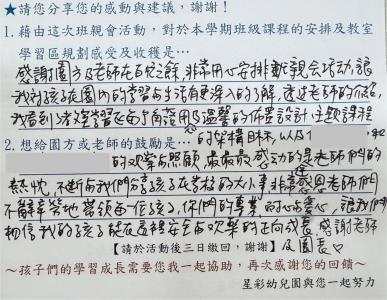 ★請您分享您的感動與建議，謝謝！
1. 藉由這次班親會活動，對於本學期班級課程的安排及教室
學習區規劃感受及收穫是…
感謝園方及老師在百忙之餘，非常用心安排親子會活動，讓
我對孩子在園內的學習與生活有更深入的了解，透過老師的介紹，
我看到各種學習區每方面溫馨的佈置設計，主題課程
2. 想給園方或老師的鼓勵是… 的架構目標，以及
的觀察與照顧，最感動的是老師們的
熱忱，不斷與我們分享孩子在學校的大小事，非常感恩老師們
不辭辛勞地帶領每一個孩子，你們的專業、耐心與愛心，讓我們
相信我的孩子能在這裡安全與歡樂的正向成長，感謝老師
【請於活動後三日繳回，謝謝】 及園長
～孩子們的學習成長需要您我一起協助，再次感謝您的回饋～
星彩幼兒園與您一起努力